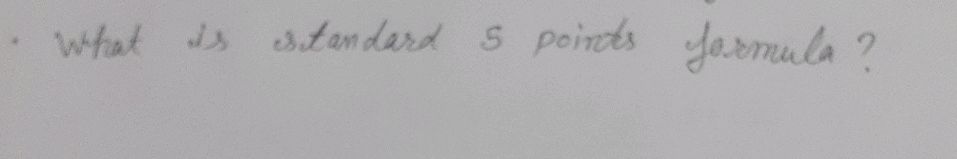 . What is standard 5 points formula?